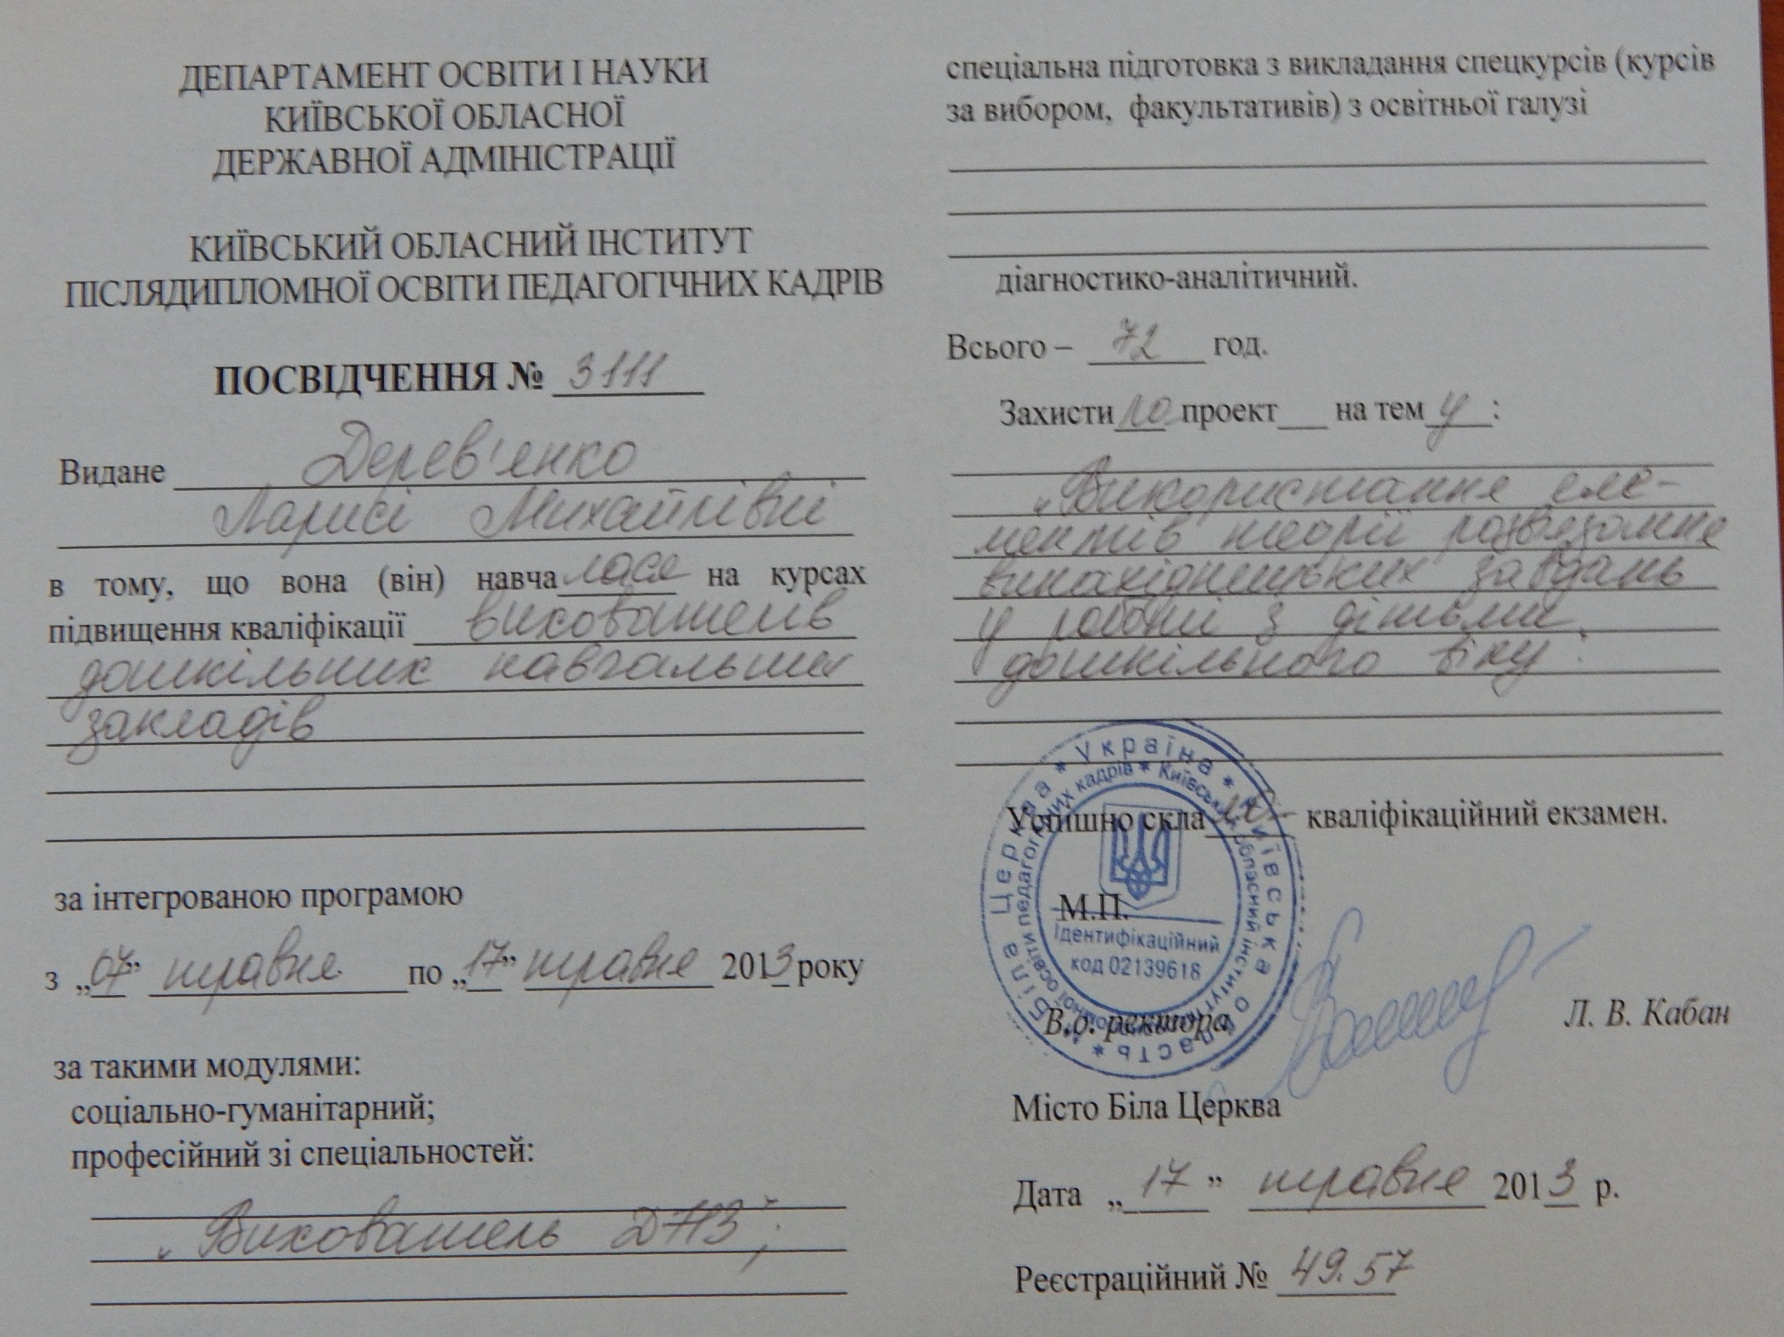 ДЕПАРТАМЕНТ ОСВІТИ І НАУКИ
КИЇВСЬКОЇ ОБЛАСНОЇ
ДЕРЖАВНОЇ АДМІНІСТРАЦІЇ
КИЇВСЬКИЙ ОБЛАСНИЙ ІНСТИТУТ
ПІСЛЯДИПЛОМНОЇ ОСВІТИ ПЕДАГОГІЧНИХ КАДРІВ
ПОСВІДЧЕННЯ № 3111
Видане Дерев'янко
Ларисі Михайлівні
в тому, що вона (він) навчалася на курсах
підвищення кваліфікації вихователів
дошкільних навчальних
закладів
за інтегрованою програмою
з „07” травня по „17” травня 2013 року
за такими модулями:
соціально-гуманітарний;
професійний зі спеціальностей:
„Вихователь ДНЗ”;
спеціальна підготовка з викладання спецкурсів (курсів
за вибором, факультативів) з освітньої галузі
діагностико-аналітичний.
Всього – 72 год.
Захистила проект на тему:
„Використання еле-
ментів теорії розв'язання
винахідницьких завдань
у роботі з дітьми
дошкільного віку".
Успішно склала кваліфікаційний екзамен.
М.П.
В.о. ректора Л. В. Кабан
Україна * Київська область * Біла Церква *
Київський обласний інститут післядипломної освіти педагогічних кадрів *
Ідентифікаційний
код 02139618
Місто Біла Церква
Дата „17” травня 2013 р.
Реєстраційний № 49.57